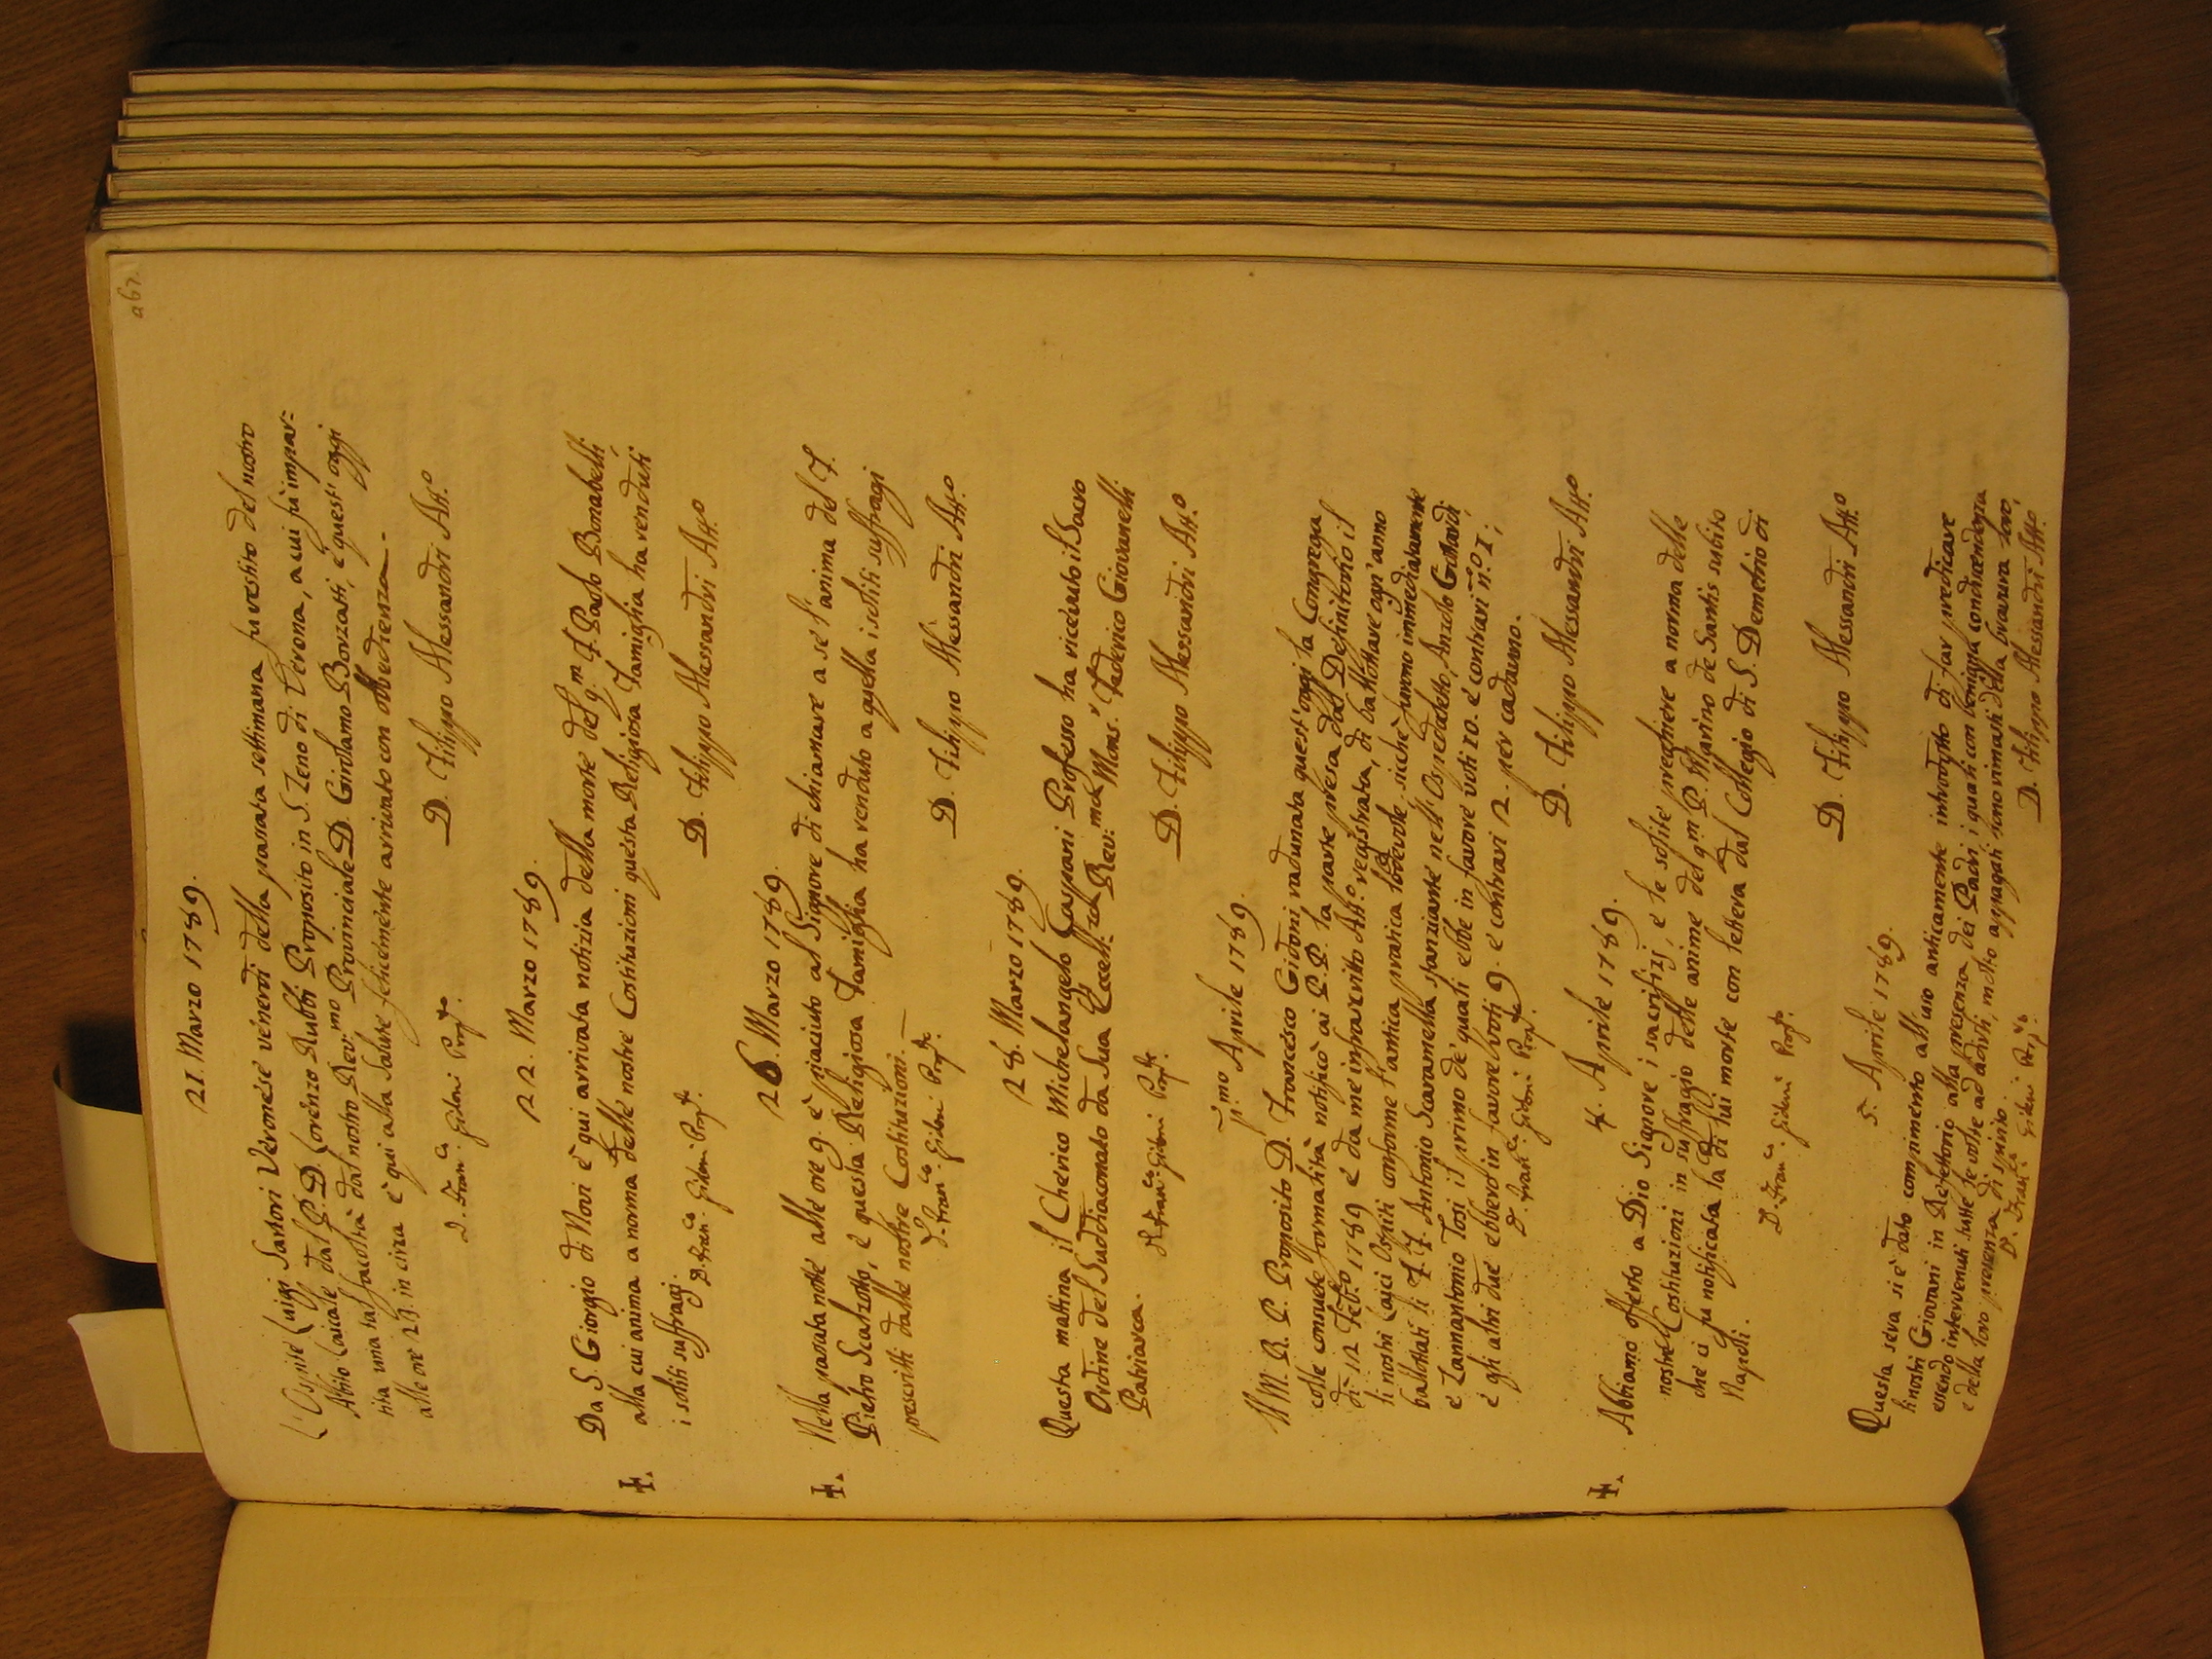 a67.
21. Marzo 1789.
L'Ospite Luigi Santori Veronese venerdì della passata settimana fu vestito del nostro
Abito Laicale dal P. D. Lorenzo Rubbi Proposito in S. Zeno di Verona, a cui fù impar=
tita una tal facoltà dal nostro Rev.mo Provinciale D. Girolamo Borzatti, e quest' oggi
alle ore 23. in circa è quì alla Salute felicemente arrivato con obbedienza.
D. Fran.co Gidoni Prop.to
D. Filippo Alessandri Att.o
22. Marzo 1789.
Da S. Giorgio di Novi è qui arrivata notizia della morte del q.m F. Paolo Bonabelli
alla cui anima a norma delle nostre Costituzioni questa Religiosa Famiglia ha renduti
i soliti suffragj.
D. Fran.co Gidoni Prop.to
D. Filippo Alessandri Att.o
26. Marzo 1789.
Nella passata notte alle ore 9. è piaciuto al Signore di chiamare a se l'anima del F.
Pietro Scalzotto, e questa Religiosa Famiglia ha renduto a quella i soliti suffragj
prescritti dalle nostre Costituzioni.
D. Fran.co Gidoni Prop.to
D. Filippo Alessandri Att.o
28. Marzo 1789.
Questa mattina il Cherico Michelangelo Gaspari Professo ha ricevuto il Sacro
Ordine del Suddiaconado da Sua Eccell.za Rev.ma Mons.r Federico Giovanelli
Patriarca.
D. Fran.co Gidoni Prop.to
D. Filippo Alessandri Att.o
p.mo Aprile 1789.
Il M. R. P. Proposito D. Francesco Gidoni radunata quest' oggi la Congrega
colle consuete formalità notificò ai P.P. la parte presa dal Definitorio il
dì 12 Feb.o 1789 e da me infrascritto Att.o registrata, di ballottare ogn'anno
li nostri Laici Ospiti conforme l'antica pratica lodevole, sicchè furono immediatamente
ballottati li F.F. Antonio Scaramella stanziante nell' Ospedaletto, Anzolo Gottardi,
e Zannantonio Tosi il primo de' quali ebbe in favore voti 10. e contrari n.o 1;
e gli altri due ebbero in favore voti 9. e contrari 2. per cadauno.
D. Fran.co Gidoni Prop.to
D. Filippo Alessandri Att.o
4. Aprile 1789.
Abbiamo offerto a Dio Signore i sacrifizj, e le solite preghiere a norma delle
nostre Costituzioni in suffragio delle anime del q.m P. Marino de Santis subito
che ci fu notificata la di lui morte con lettera dal Collegio di S. Demetrio di
Napoli.
D. Fran.co Gidoni Prop.to
D. Filippo Alessandri Att.o
5. Aprile 1789.
Questa sera si è dato compimento all' uso anticamente introdotto di far predicare
li nostri Giovani in Refettorio alla presenza dei Padri i quali con benigna condiscendenza
essendo intervenuti tutte le volte ad udirli, molto appagati sono rimasti della bravura loro,
e della loro presenza di spirito.
D. Fran.co Gidoni Prop.to
D. Filippo Alessandri Att.o